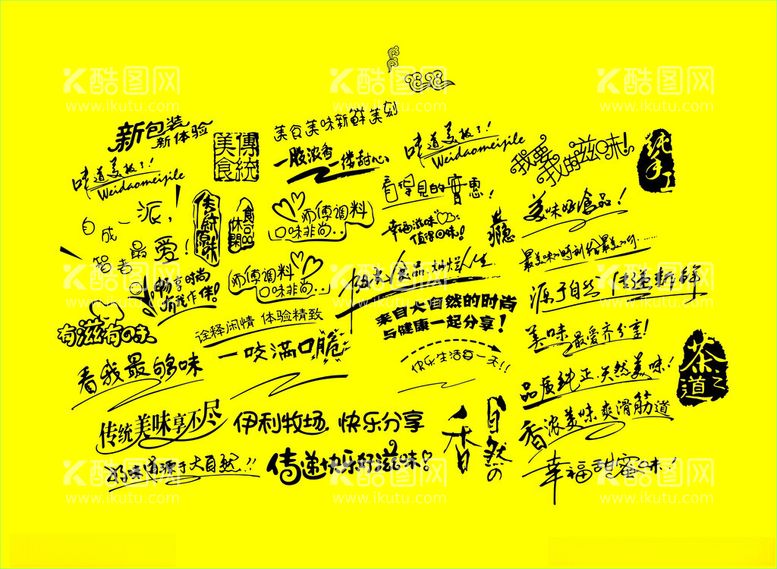 酷图网
www.ikutu.com
新包装
新体验
传统
美食
美食美味新鲜美刻
一股浓香 一缕甜心
味道美极了!
Weidaomeijile
味道美极了!
Weidaomeijile
我要我的滋味!
纯手工
看得见的实惠!
自成一派,
最爱!
智者
休闲
食品
师傅调料
口味非尚...
幸福滋味
值得回味!
瘾
美味好食品!
畅享时尚
有我作伴!
师傅调料
口味非尚...
源于自然 传递新鲜
来自大自然的时尚
与健康一起分享!
有滋有味
诠释闲情 体验精致
一咬满口脆
美味最爱齐分享!
看我最够味
快乐生活每一天!!
品质纯正 天然美味!
茶之道
传统美味享不尽
伊利牧场 快乐分享
香
自然の
香浓美味 爽滑筋道
好味道源于大自然!!
传递快乐好滋味!
幸福甜蜜味!